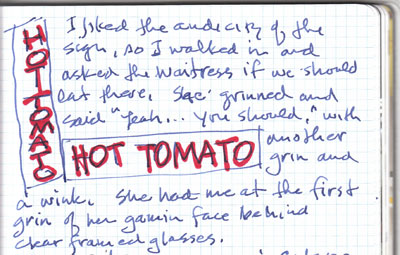 HOT TOMATO
I liked the audicity of the
sign, so I walked in and
asked the Waitress if we should
eat there. She grinned and
said "Yeah... you should," with
HOT TOMATO another
grin and
a wink. She had me at the first
grin of her gamin face behind
clear framed glasses.